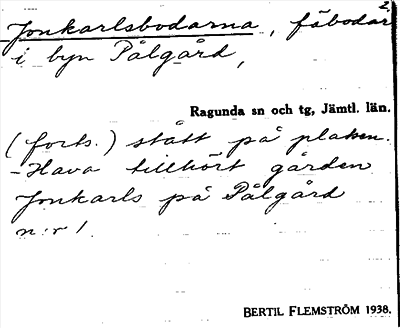 2.
Jonkarlsbodarna, fäbodar
i byn Pålgård,
Ragunda sn och tg, Jämtl. län.
(forts.) stått på platsen.
- Hava tillhört gården
Jonkarls på Pålgård
n:r 1.
BERTIL FLEMSTRÖM 1938.